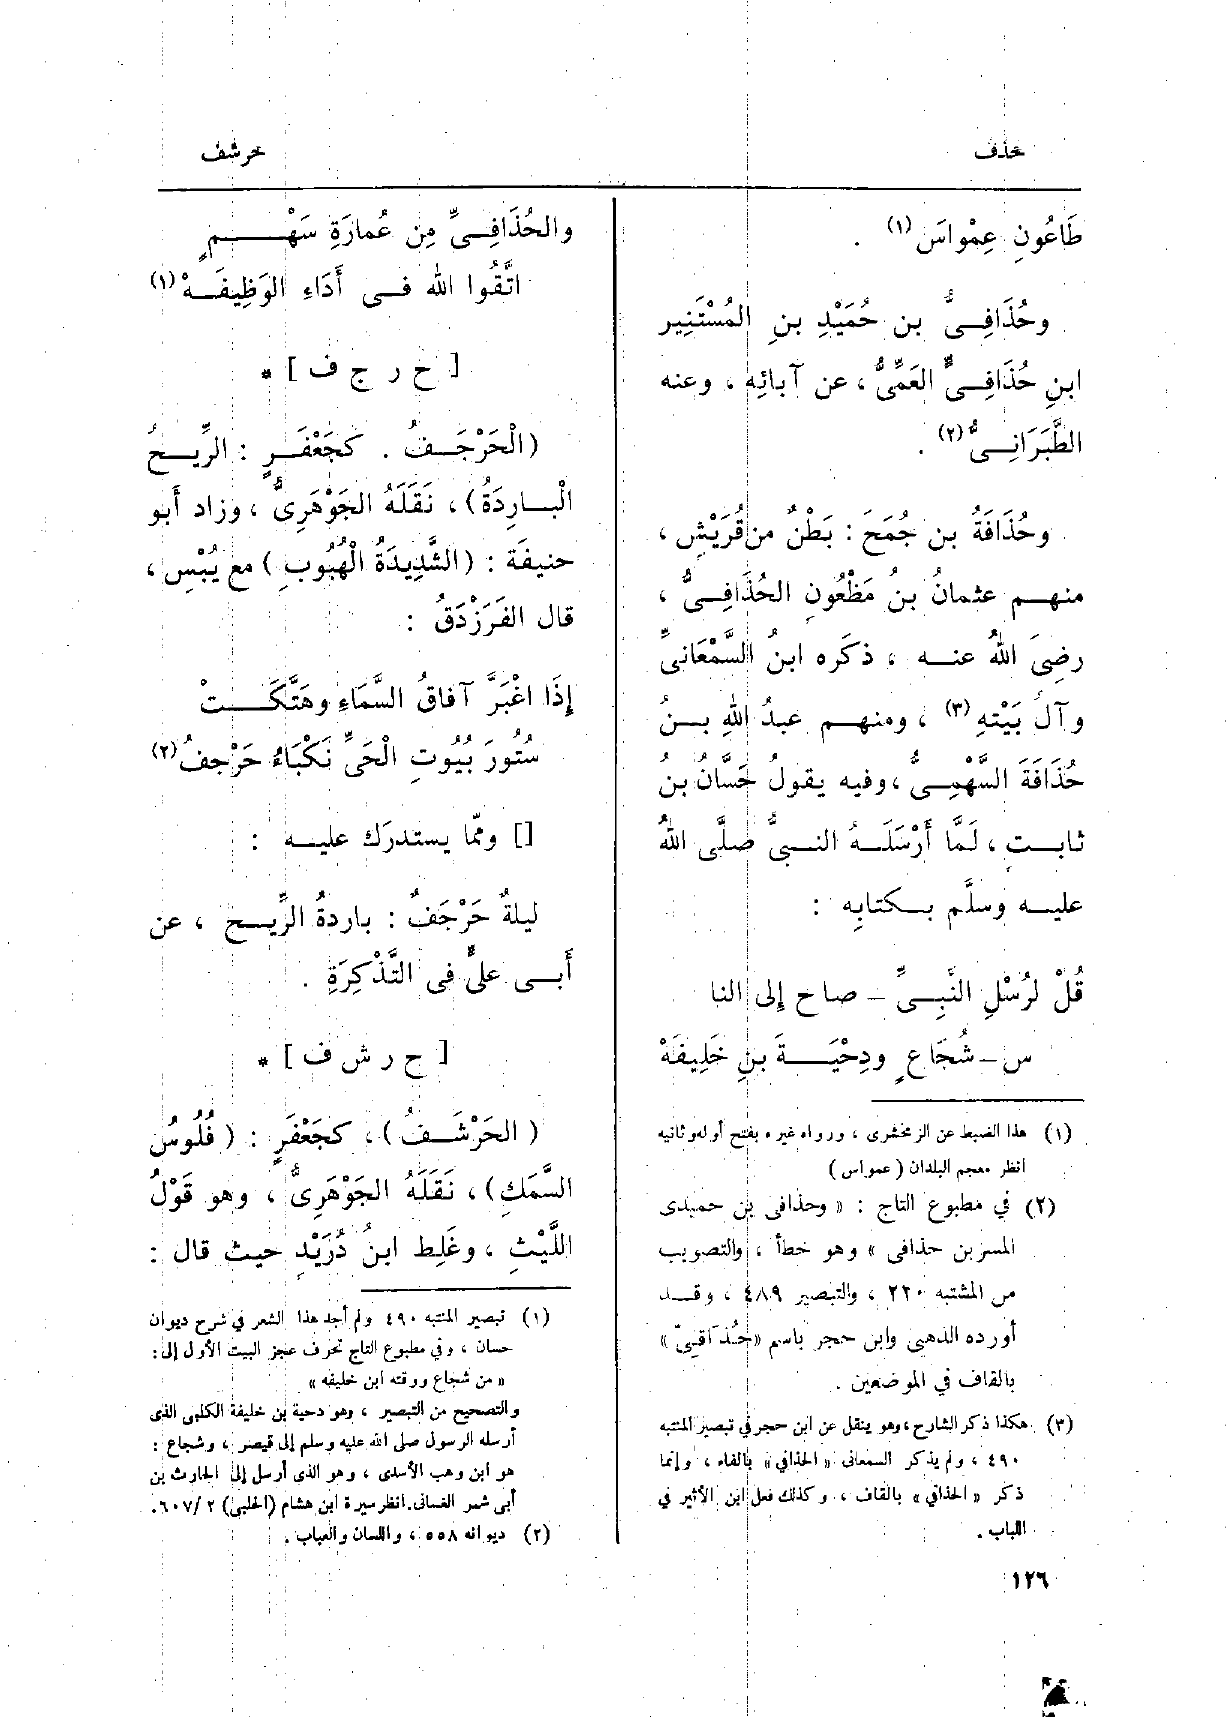 حذف
حرشف
طَاعُونِ عِمْواسَ (١) .
وحُذَافِىُّ بن حُمَيْدِ بنِ المُسْتَنِير
ابنِ حُذَافِىٍّ العَمِّىُّ ، عن آبائِه ، وعنه
الطَّبَرَانِىُّ (٢) .
وحُذَافَةُ بن جُمَحَ : بَطْنٌ من قُرَيْشٍ ،
منهم عثمانُ بنُ مَظْعُونٍ الحُذَافِىُّ ،
رضِىَ اللهُ عنه ، ذكَره ابنُ السَّمْعَانىِّ
وآلُ بَيْتهِ (٣) ، ومنهم عبدُ اللهِ بنُ
حُذَافَةَ السَّهْمِىُّ ، وفيه يقولُ حَسَّانُ بن
ثابتٍ ، لَمَّا أَرْسَلَهُ النبىُّ صلَّى اللهُ
عليه وسلَّم بكتابِه :
قُلْ لرُسْلِ النَّبِىِّ – صاح إلى النا
س – شُجَاعٍ ودِحْيَةَ بنِ خَلِيفَهْ
(١) هذا الضبط عن الزمخشرى ، ورواه غيره بفتح أوله وثانيه
انظر معجم البلدان ( عمواس )
(٢) في مطبوع التاج : « وحذافى بن حميدى
المسز بن حذافى » وهو خطأ ، والتصويب
من المشتبه ٢٢٠ ، والتبصير ٤٨٩ ، وقد
أورده الذهبى وابن حجر باسم « حُذَاقىّ »
بالقاف في الموضعين .
(٣) هكذا ذكر الشارح ، وهو ينقل عن ابن حجر في تبصير المنتبه
٤٩٠ ، ولم يذكر السمعانى « الحذافي » بالفاء ، وإنما
ذكر « الحذاقي » بالقاف ، وكذلك فعل ابن الأثير في
اللباب .
١٢٦
والحُذَافِىِّ مِن عُمارَةِ سَهْمٍ
اتَّقُوا الله فى أَدَاءِ الوَظِيفَهْ (١)
[ ح ر ج ف ] *
( الْحَرْجَفُ . كجَعْفَرٍ : الرِّيحُ
الْبارِدَةُ ) ، نَقَلَهُ الجَوْهَرِىُّ ، وزاد أَبو
حنيفَة : ( الشَّدِيدَةُ الْهُبُوبِ ) مع يُبْسٍ ،
قال الفَرَزْدَقُ :
إِذَا اغْبَرَّ آفاقُ السَّمَاءِ وهَتَّكَتْ
سُتُورَ بُيُوتِ الْحَىِّ نَكْبَاءُ حَرْجفُ (٢)
[] وممّا يستدرَك عليه :
ليلةٌ حَرْجَفٌ : باردةُ الرِّيح ، عن
أَبى علىٍّ فى التَّذْكِرَةِ .
[ ح ر ش ف ] *
( الحَرْشَفُ ) ، كجَعْفَرٍ : ( فُلُوسُ
السَّمَكِ ) ، نَقَلَهُ الجَوْهَرِىُّ ، وهو قَوْلُ
اللَّيْثِ ، وغَلِط ابنُ دُرَيْدٍ حيث قال :
(١) تبصير المنتبه ٤٩٠ ولم أجد هذا الشعر في شرح ديوان
حسان ، وفي مطبوع التاج تحرف عجز البيت الأول إلى :
« من شجاع وورقته ابن خليفه »
والتصحيح من التبصير ، وهو دحية بن خليفة الكلبى الذى
أرسله الرسول صلى الله عليه وسلم إلى قيصر ، وشجاع :
هو ابن وهب الأسدى ، وهو الذى أرسل إلى الحارث بن
أبى شمر الغسانى. انظر سيرة ابن هشام (الحلبى) ٢ /٦٠٧.
(٢) ديوانه ٥٥٨ ، واللسان والعباب .